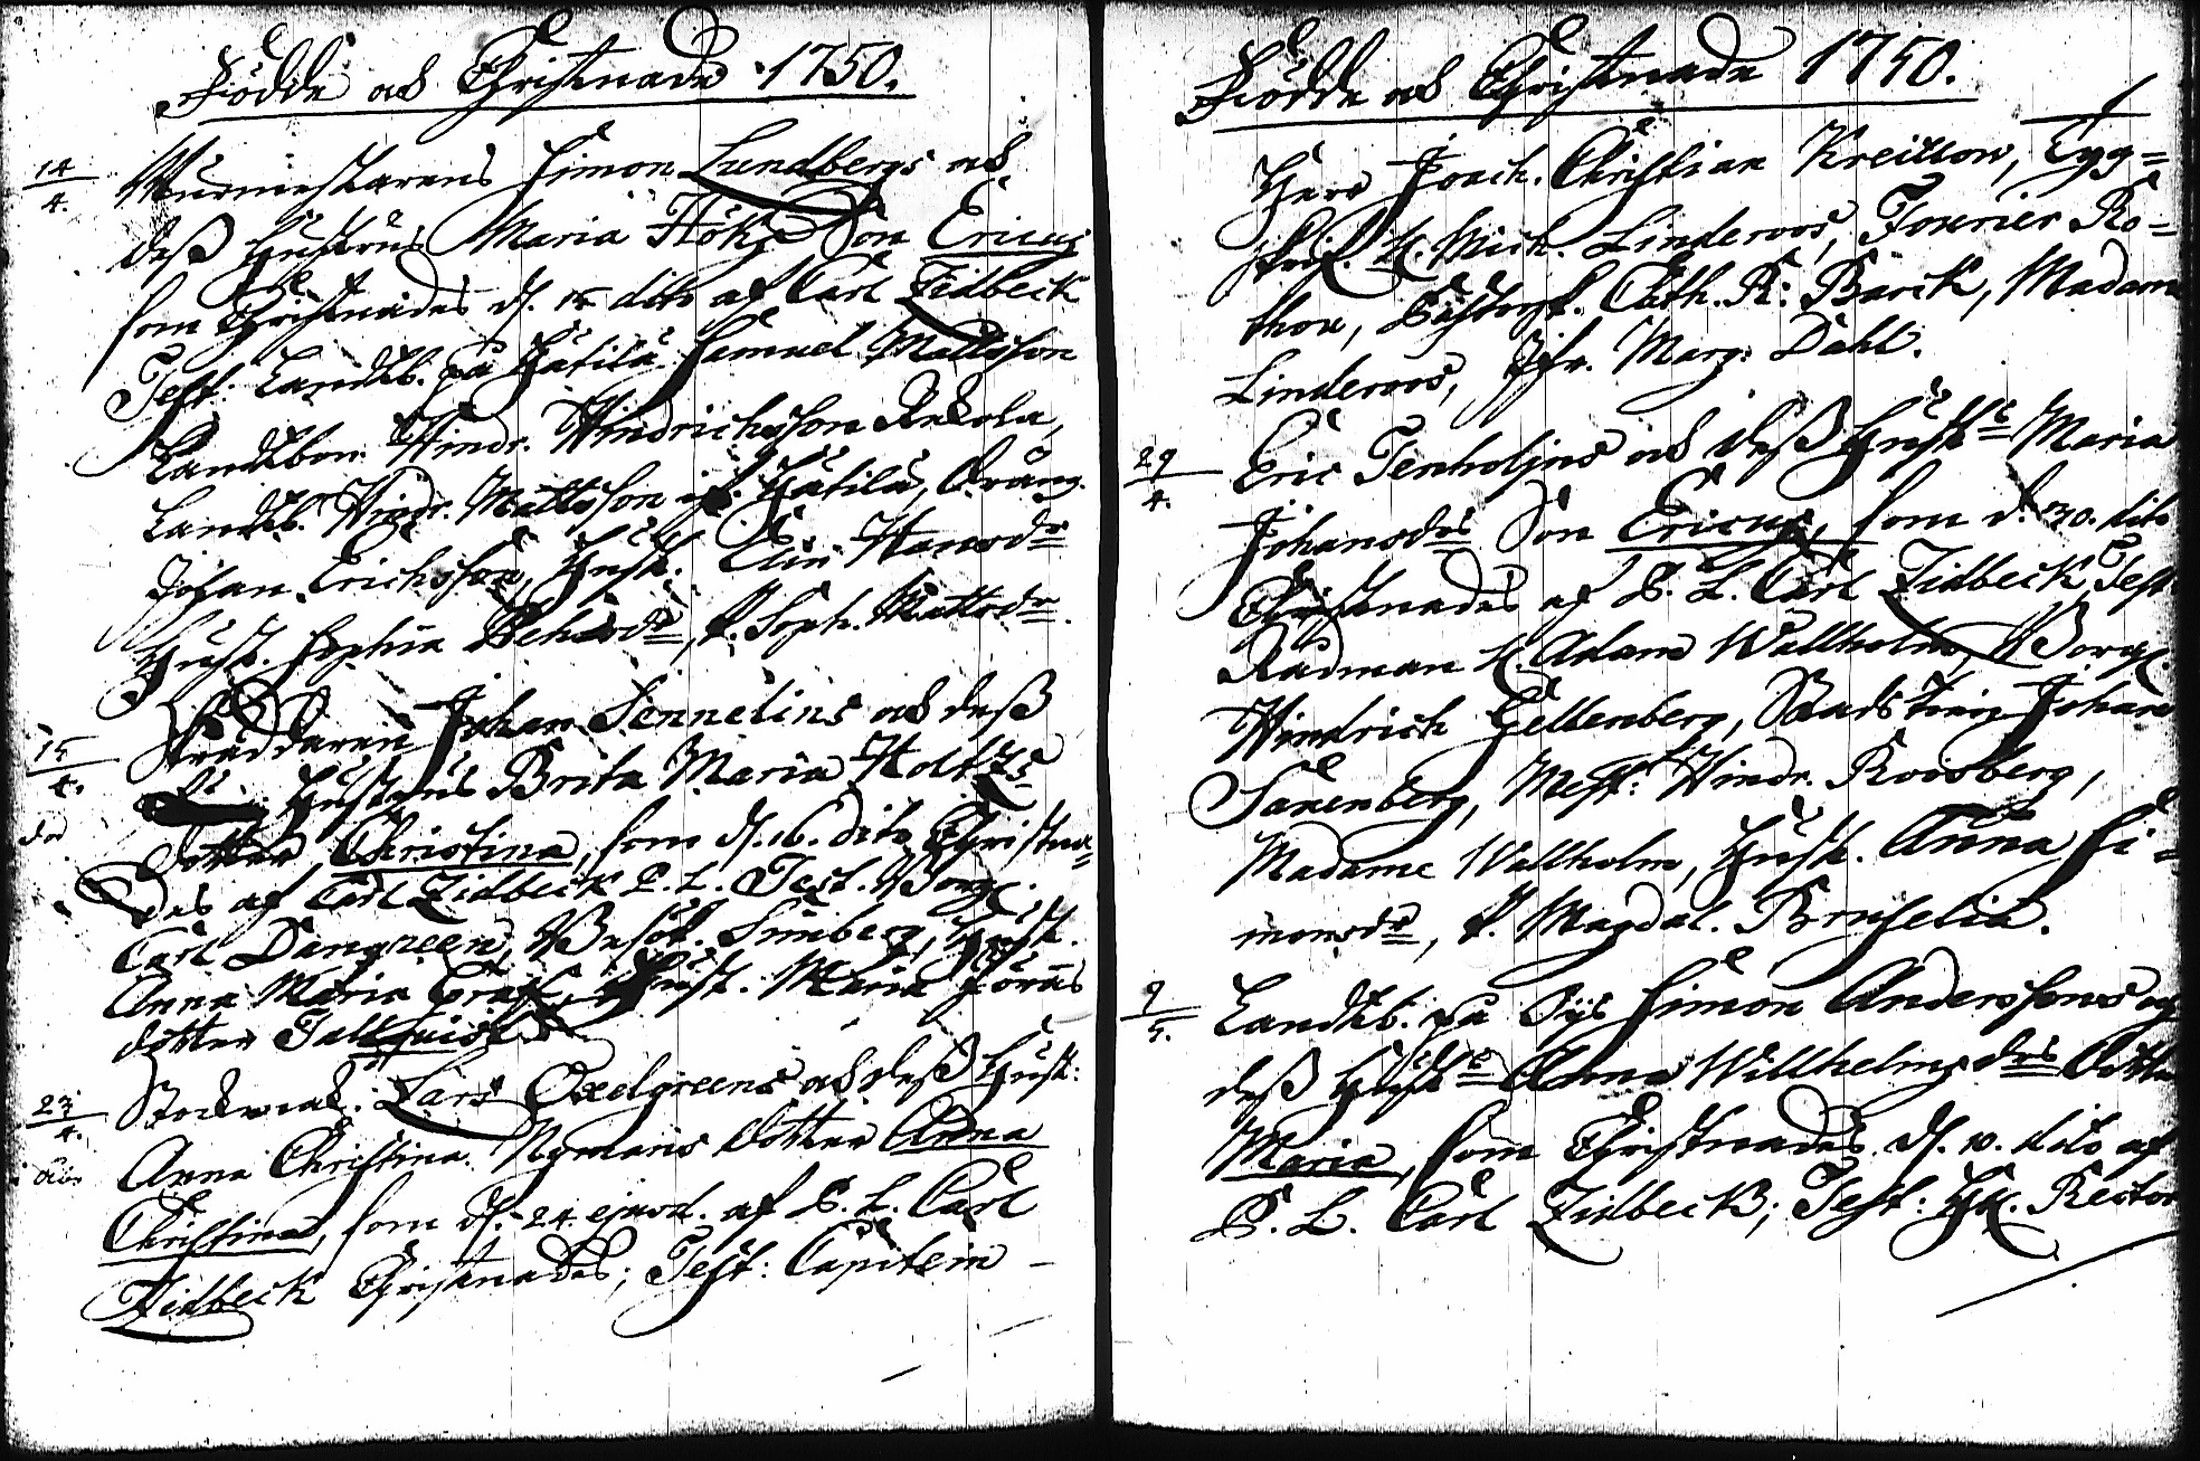 Födde och Christnade 1750.
14/4. Murmestarens Simon Lundbergs och
deß Hustrus Maria Hökz Son Ericus
som Christnades d. 15 dito af Carl Lidbeck
Test: Landtb. på Hatila Samuel Mattsson
Landtbon Hindr. Hindrichsson Ackola,
Landtb. Hindr. Mattsson if. Hatila, Dräng.
Johan Erichsson, Hust. Elin Hansdr
Hust. Sophia dr, P. Soph. Mattsdr.
15/4. Skräddaren Johan Sennelius och deß
Hustrus Brita Maria Holtz
dotter Christina, som d. 16. dito Christna-
des af Carl Lidbeck P. L. Test. Borg.
Carl Dangreen, Besök. Simberg, Hust.
Anna Maria Hust. Maria Jörans
dotter Tallquist
23/4. Stadswacht. Lars Oxelgreens och deß Hust:
Anna Christina Nymans dotter Anna
Christina, som d. 24 ejusd. af P. L. Carl
Lidbeck Christnades; Test: Capitein
Födde och Christnade 1750.
Herr Joach. Christian Kreitlow, Tyg=
skrif. H. Mich. Linderoos, Fourier Ro=
thon, Cath. R: Barck, Madam
Linderoos, Jfr. Marg: Dahl.
29/4. Eric Tenholjus och deß Hust. Maria
Johansdrs Son Ericus, som d. 30. dito
Christnades af P. L. Carl Lidbeck, Test
Rådman H. Adam Wallholm, Borg.
Hindrich Hellenberg, Stadstien. Johan
Sanenberg, Mest: Hindr. Roosberg,
Madame Wallholm, Hust. Anna Si=
monsdr, P. Magdal. Bruselia.
9/5. Landtb. på Öijs Simon Anderssons och
deß Hust. Anna Willhelmsdrs Dotter
Maria, som Christnades d. 10. dito af
P. L. Carl Lidbeck; Test: Hr. Rector